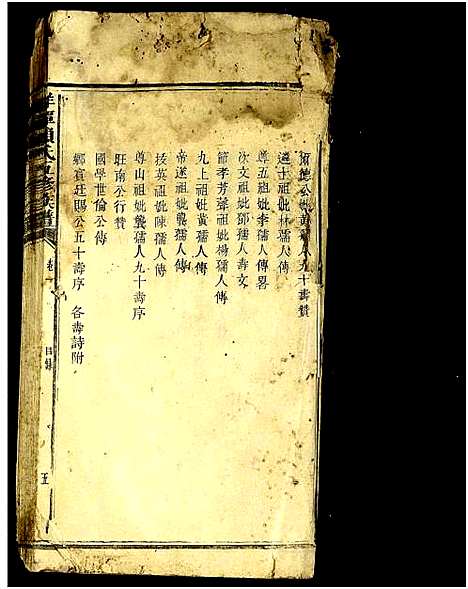 德公妣黃孺人九十壽贊
通士祖妣林孺人傳
尊五祖妣李孺人傳畧
次文祖妣鄧孺人壽文
節孝芳聲祖妣楊孺人傳
九上祖妣黃孺人傳
帝遂祖妣龔孺人傳
技英祖妣陳孺人傳
尊山祖妣龔孺人九十壽序
旺南公行贊
國學世倫公傳
鄉賓廷賜公五十壽序 各壽詩附
氏五修族譜
卷一
目錄
五